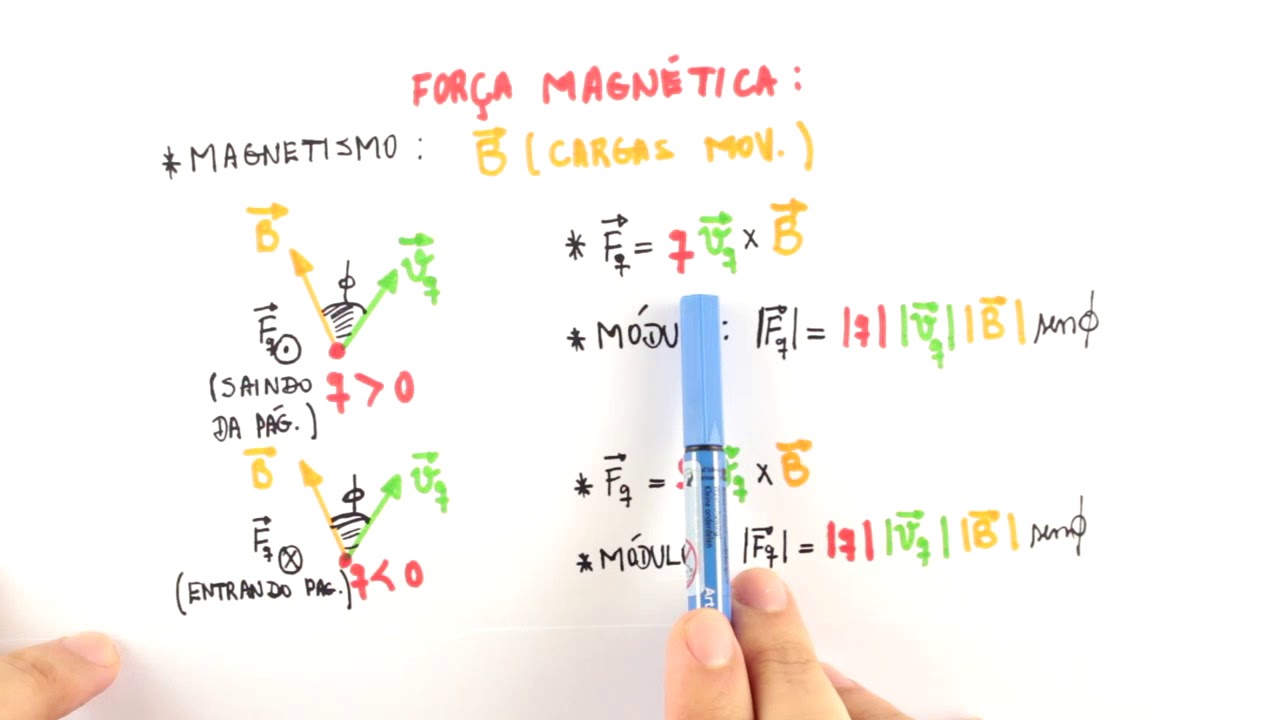 FORÇA MAGNÉTICA:
*MAGNETISMO: B⃗ (CARGAS MOV.)
B⃗
v⃗q
ϕ
F⃗q
(SAINDO
DA PÁG.)
q > 0
* F⃗q = q v⃗q × B⃗
* MÓDU : |F⃗q| = |q| |v⃗q| |B⃗| senϕ
B⃗
v⃗q
ϕ
F⃗q
(ENTRANDO PAG.)
q < 0
* F⃗q = v⃗q × B⃗
* MÓDUL |F⃗q| = |q| |v⃗q| |B⃗| senϕ